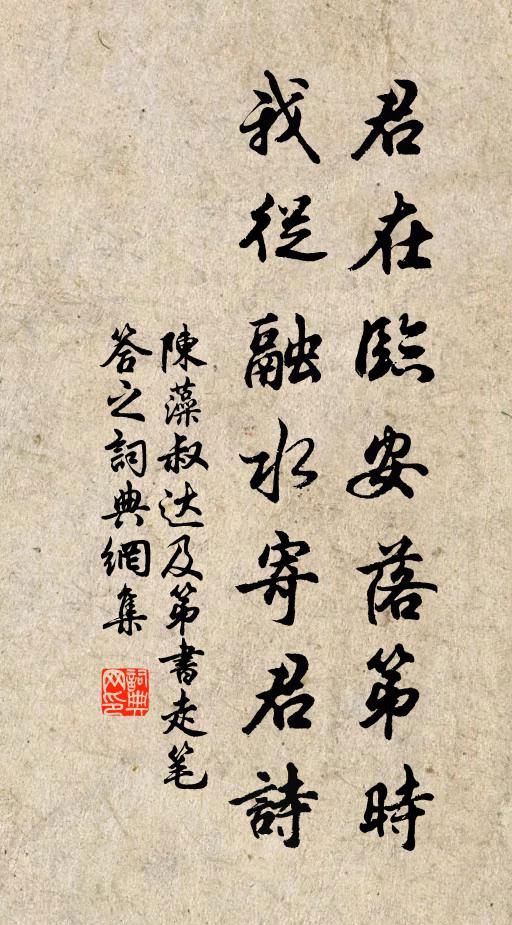 君在臨安落第時
我從融水寄君詩
陳藻叔达及第書走笔
答之詞典網集
詞典网印